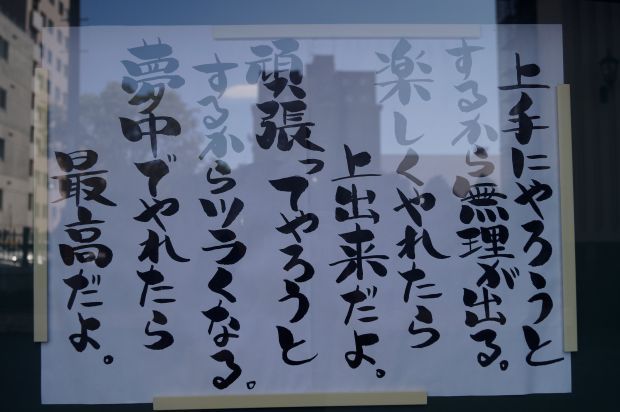 上手にやろうと
するから無理が出る。
楽しくやれたら
上出来だよ。
頑張ってやろうと
するからツラくなる。
夢中でやれたら
最高だよ。